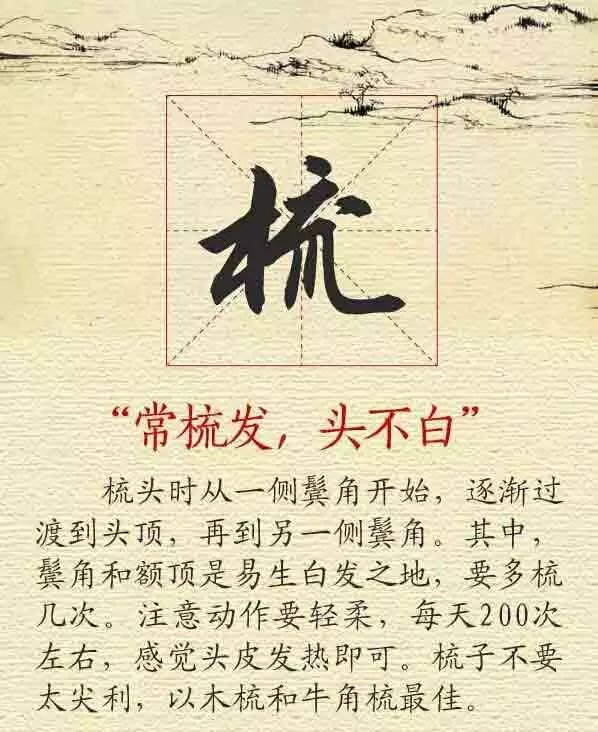 梳
“常梳发，头不白”
梳头时从一侧鬓角开始，逐渐过
渡到头顶，再到另一侧鬓角。其中，
鬓角和额顶是易生白发之地，要多梳
几次。注意动作要轻柔，每天200次
左右，感觉头皮发热即可。梳子不要
太尖利，以木梳和牛角梳最佳。